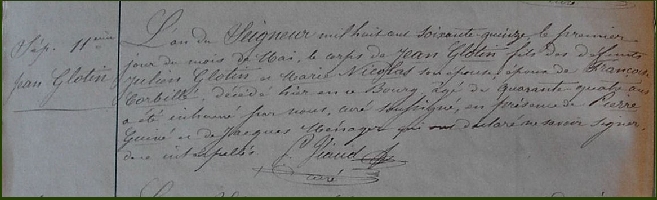 Sép. 11ème
Jean Glotin
L'an du Seigneur mil huit cent soixante-quinze, le premier
jour du mois de Mai, le corps de Jean Glotin fils des défunts
Julien Glotin et Marie Nicolas son épouse, époux de Françoise
Corbillé, décédé hier, en ce Bourg, âgé de quarante-quatre ans
a été inhumé par nous, curé soussigné, en présence de Pierre
Guiné et de Jacques Ménager qui ont déclaré ne savoir signer,
de ce interpellés.
curé